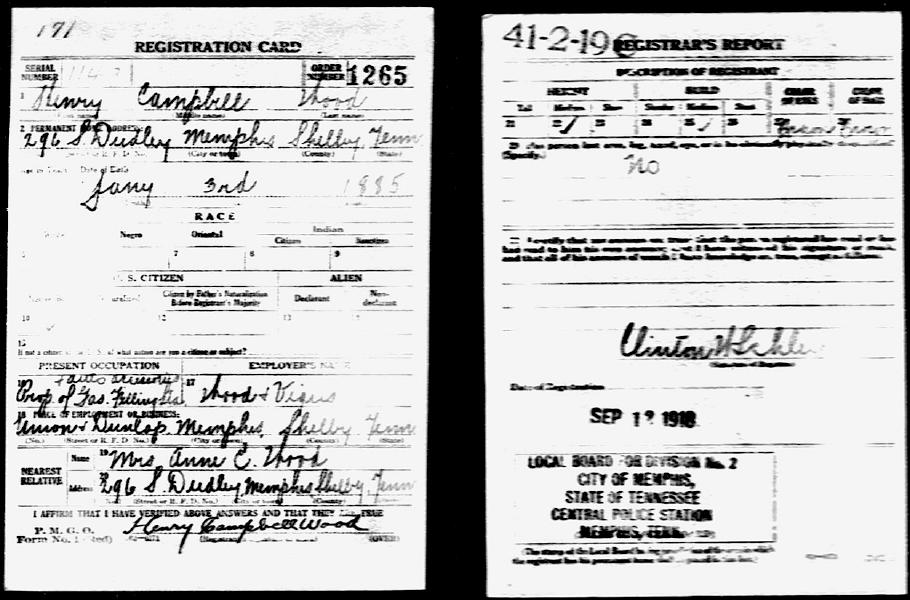 171
REGISTRATION CARD
SERIAL NUMBER
ORDER NUMBER 1265
1 Henry Campbell Wood
(Middle name) (Last name)
2 PERMANENT HOME ADDRESS:
296 S. Dudley Memphis Shelby Tenn
(Street or R. F. D. No.) (City or town) (County) (State)
Date of Birth
Jany 3rd 1885
RACE
Negro Oriental Indian
Citizen
7 8 9
U. S. CITIZEN ALIEN
Citizen by Father's Naturalization Before Registrant's Majority
Declarant Non-declarant
10 12 13
15
If not a citizen of the U. S., of what nation are you a citizen or subject?
PRESENT OCCUPATION EMPLOYER'S NAME
16 + auto accessories 17
Prop of Gas. Filling Sta. Wood +
18 PLACE OF EMPLOYMENT OR BUSINESS:
Union + Dunlap Memphis Shelby Tenn
(No.) (Street or R. F. D. No.) (City or town) (County) (State)
NEAREST RELATIVE
Name 19 Mrs Anne C. Wood
Address 20 296 S. Dudley Memphis Shelby Tenn
(Street or R. F. D. No.) (City or town) (County) (State)
I AFFIRM THAT I HAVE VERIFIED ABOVE ANSWERS AND THAT THEY ARE TRUE
P. M. G. O.
Form No. 1 (Red) Henry Campbell Wood
(OVER)
41-2-19 C
REGISTRAR'S REPORT
DESCRIPTION OF REGISTRANT
HEIGHT BUILD COLOR OF EYES COLOR OF HAIR
Tall Medium Short Slender Medium Stout
21 22 ✓ 23 24 25 ✓ 26 27 Brown
29 Has person lost arm, leg, hand, eye, or is he obviously physically disqualified?
(Specify.)
No
30 I certify that my answers are true; that the person registered has read or has
had read to him his own answers; that I have witnessed his signature or mark,
and that all of his answers of which I have knowledge are true, except as follows:
Clinton
(Signature of Registrar)
Date of Registration
SEP 12 1918
LOCAL BOARD FOR DIVISION No. 2
CITY OF MEMPHIS,
STATE OF TENNESSEE
CENTRAL POLICE STATION
MEMPHIS, TENN.
(The stamp of the Local Board having jurisdiction of the area in which
the registrant has his permanent home shall be placed in this box.)